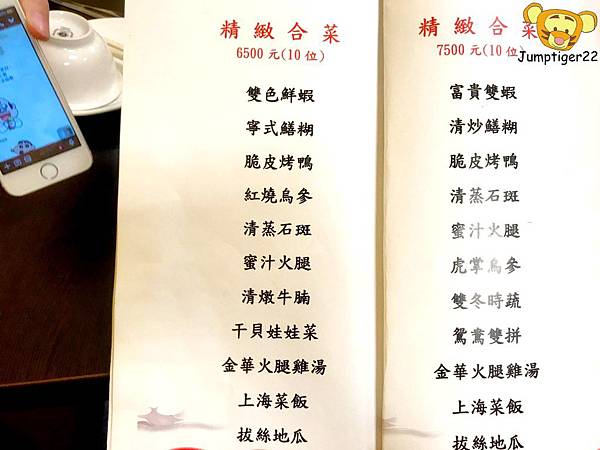 精緻合菜
6500元(10位)
雙色鮮蝦
寧式鱔糊
脆皮烤鴨
紅燒烏參
清蒸石斑
蜜汁火腿
清燉牛腩
干貝娃娃菜
金華火腿雞湯
上海菜飯
拔絲地瓜
精緻合菜
7500元(10位
富貴雙蝦
清炒鱔糊
脆皮烤鴨
清蒸石斑
蜜汁火腿
虎掌烏參
雙冬時蔬
鴛鴦雙拼
金華火腿雞湯
上海菜飯
拔絲地瓜
Jumptiger22